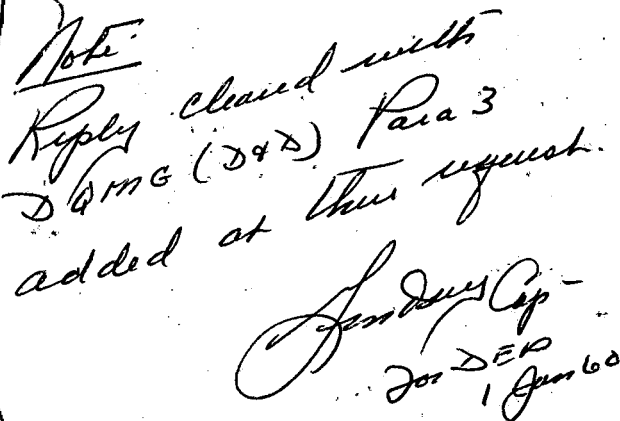 Note:
Reply cleared with
DQMG (D&D) Para 3
added at their request.
Lindsey Cap-
for DER
1 Jan 60